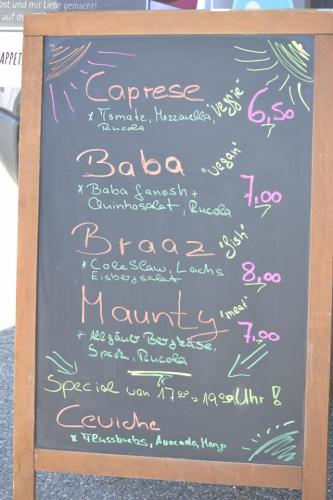 bst und mit Liebe gemacht!
APPET
Caprese "veggie" 6,50
* Tomate, Mozzarella,
Rucola
Baba "vegan" 7,00
* Baba Ganosh +
Quinhosalat, Rucola
Braaz "fish" 8,00
* ColeSlaw, Lachs
Eisbergsalat
Maunty "meat" 7,00
* Allgäuer Bergkäse,
Speck, Rucola
Special von 17:00 - 19:00 Uhr!
Ceviche
* Flussbarbs, Avocado, Mango